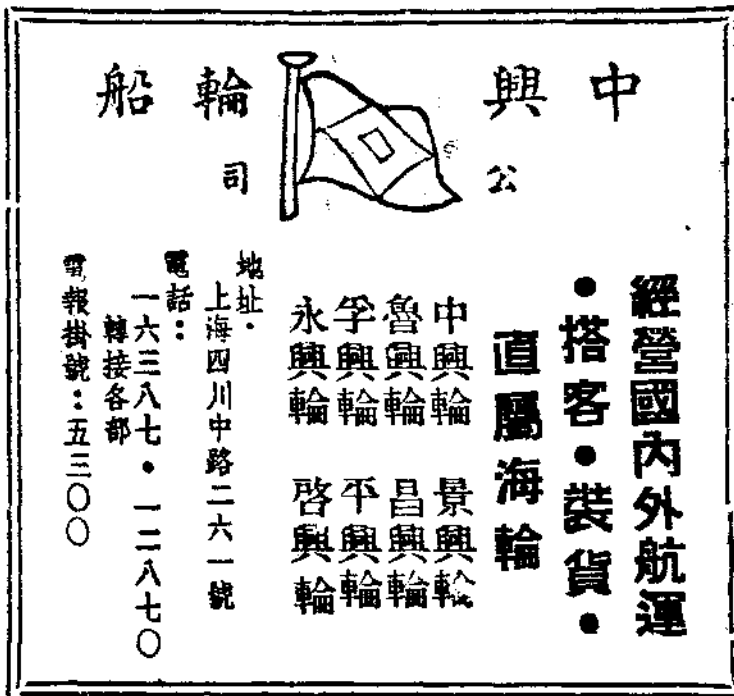 中興輪船
公司
經營國內外航運
•搭客•裝貨•
直屬海輪
中興輪 景興輪
魯興輪 昌興輪
孚興輪 平興輪
永興輪 啓興輪
地址•
上海四川中路二六一號
電話：
一六三八七•一二八七〇
轉接各部
電報掛號：五三〇〇